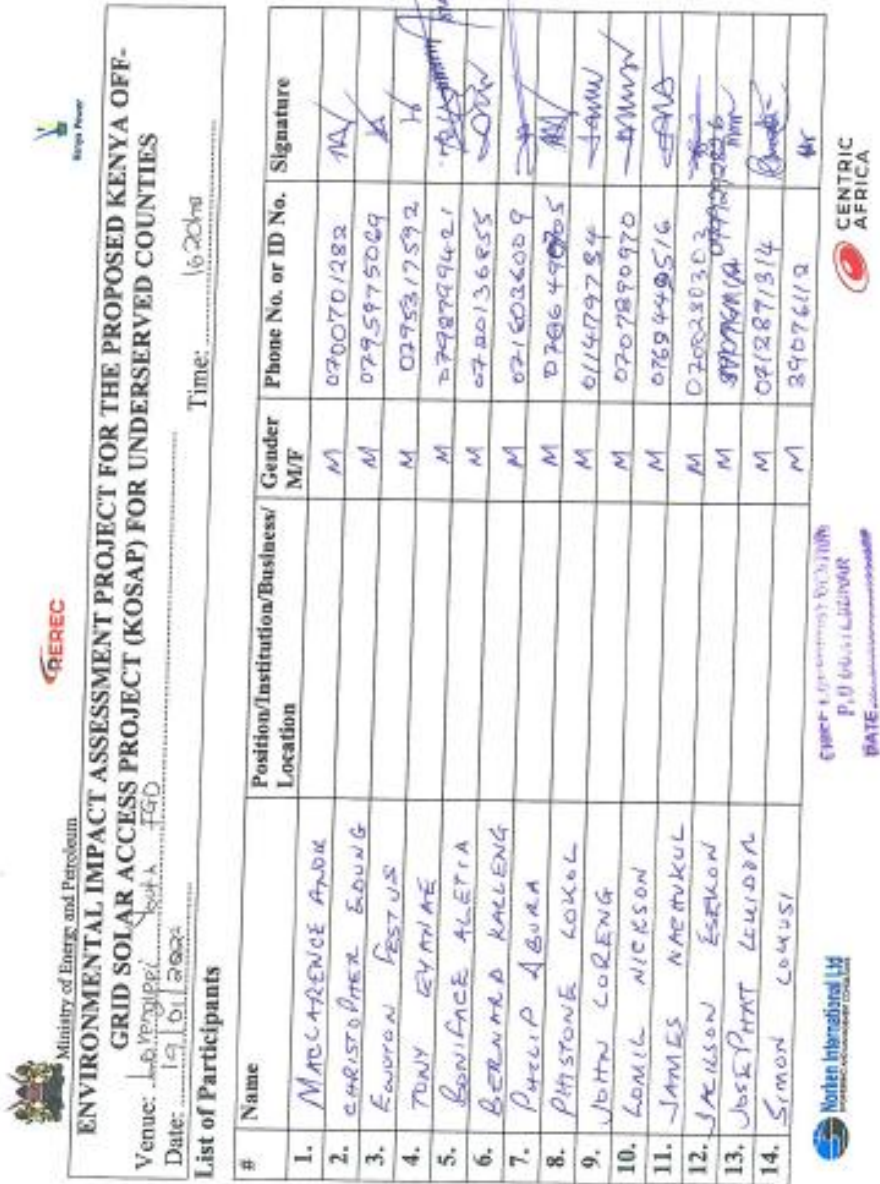 Ministry of Energy and Petroleum
REREC
Kenya Power
ENVIRONMENTAL IMPACT ASSESSMENT PROJECT FOR THE PROPOSED KENYA OFF-
GRID SOLAR ACCESS PROJECT (KOSAP) FOR UNDERSERVED COUNTIES
Venue: Lorengippi Youth FGD
Date: 19/01/2022 Time: 1620hrs
List of Participants
# Name Position/Institution/Business/Location Gender M/F Phone No. or ID No. Signature
1. MACLARENCE APOR M 0700701282
2. CHRISTOPHER EDUNG M 0795975069
3. EWOTON FESTUS M 0795317592
4. TONY EYANAE M 0798799421
5. BONIFACE ALETIA M 0720136855
6. BERNARD KALLENG M 0716036009
7. PHILIP ABURA M
8. PHISTONE LOKOL M 0114179784
9. JOHN LORENG M 0707890970
10. LOMIL NICKSON M
11. JAMES NACHUKUL M 0700280303
12. JACKSON ESEKON M
13. JOSEPHAT M 0712891314
14. SIMON LOKUSI M 39076112
P.O
DATE
Norken International Ltd
CENTRIC
AFRICA